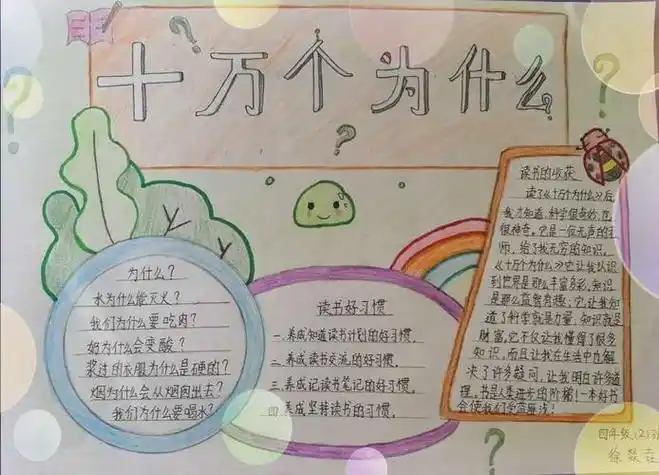 十万个为什么
为什么?
水为什么能灭火?
我们为什么要吃肉?
奶为什么会变酸?
浆过的衣服为什么是硬的?
烟为什么会从烟囱出去?
我们为什么要喝水?
读书好习惯
一.养成知道读书计划的好习惯,
二.养成读书交流的好习惯,
三.养成记读书笔记的好习惯,
四.养成坚持读书的习惯,
读书的收获
读了《十万个为什么》后,
我才知道,科学很奇妙,也
很神奇。它是一位无声的老
师,给了我无穷的知识。
《十万个为什么》它让我认识
到世界是那么丰富多彩,知识
是那么益智有趣;它让我知
道了科学就是力量,知识就是
财富,它不仅让我懂得了很多
知识,而且让我在生活中也解
决了许多疑问,让我明白许多道
理。书是人类进步的阶梯!一本好书
会使我们受益匪浅!
四年级(2)班
徐